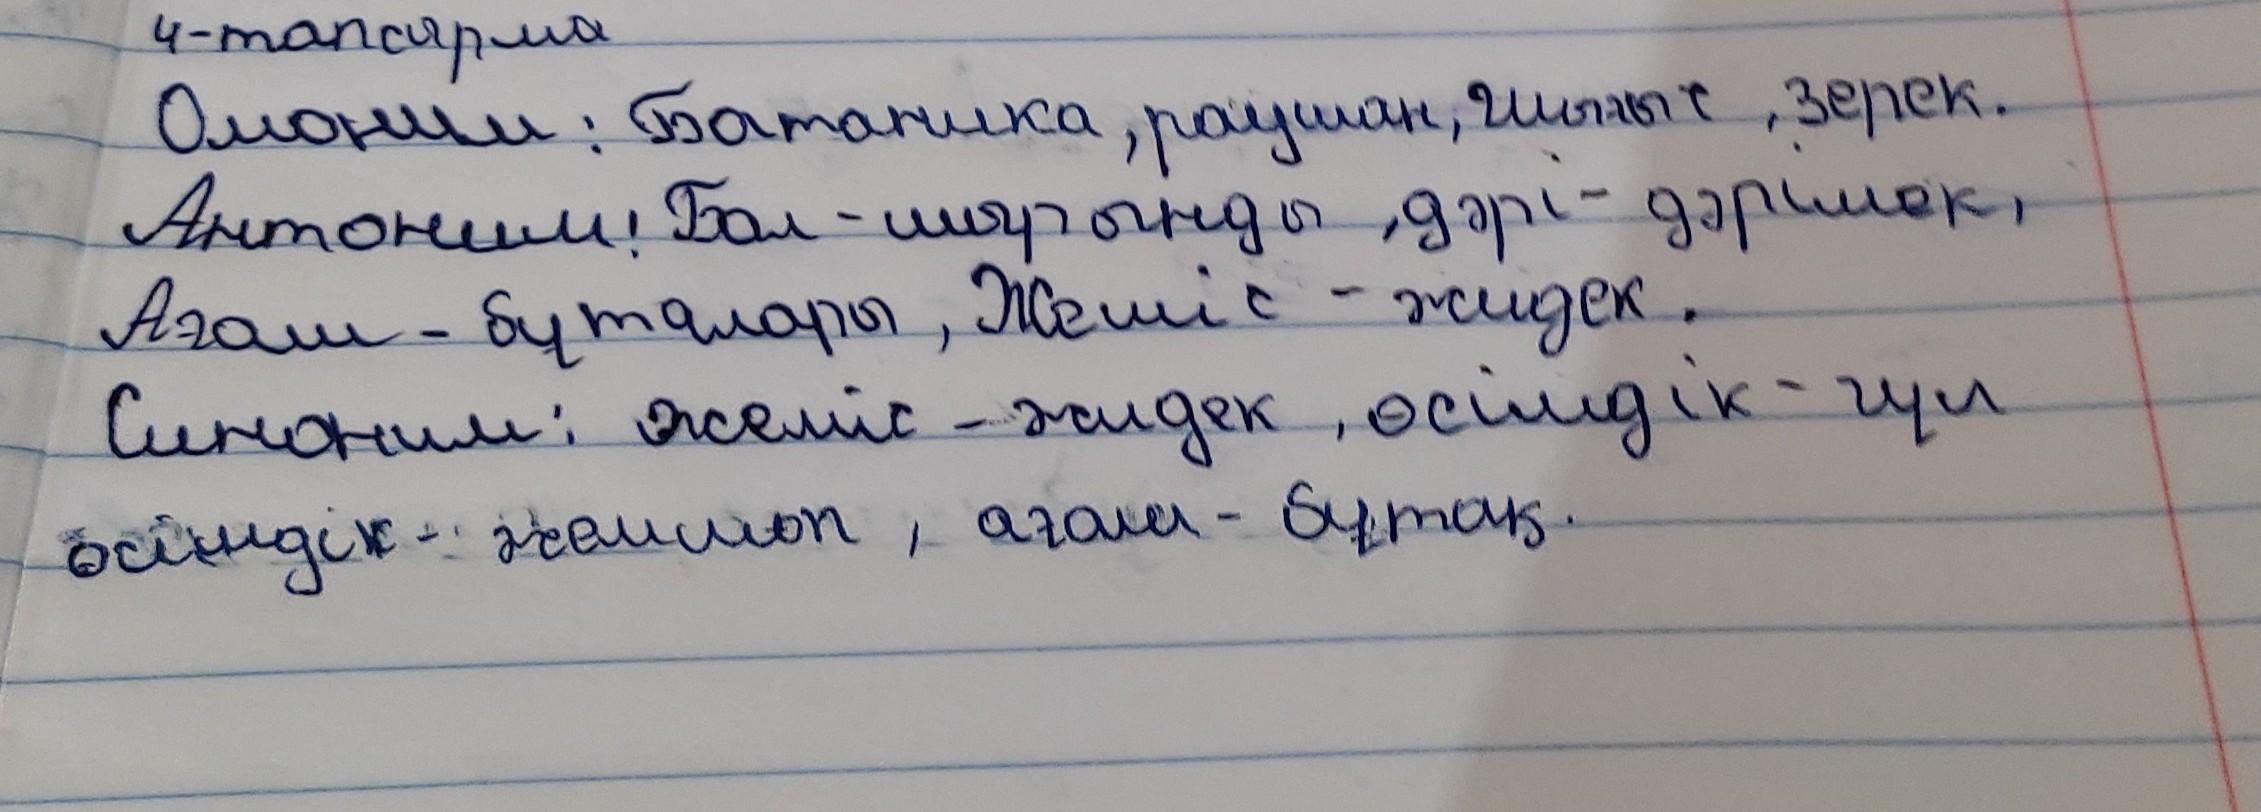 4-тапсырма
Омоним: Ботаника, раушан, Шығыс, зерек.
Антоним: Бал-шырынды, дәрі-дәрімек,
Ағаш-бұталары, Жеміс-жидек.
Синоним: жеміс-жидек, өсімдік-гүл
өсімдік-, ағаш-бұтақ.